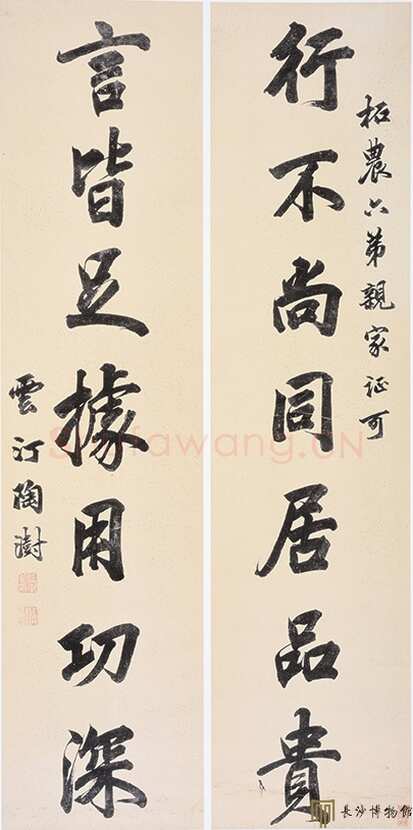 柘農六弟親家証可
行不尚同居品貴
言皆足據用功深
雲汀陶澍
Shufawang.CN
長沙博物館